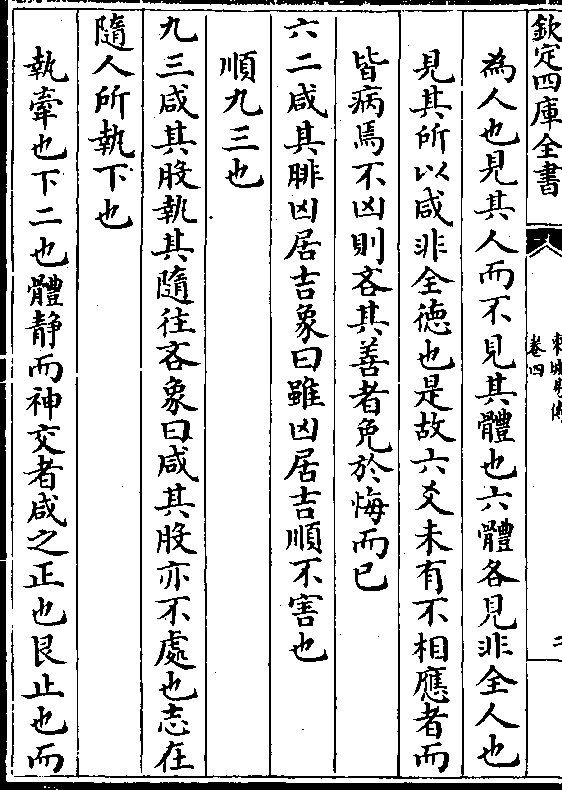 欽定四庫全書
卷四
為人也見其人而不見其體也六體各見非全人也
見其所以咸非全德也是故六爻未有不相應者而
皆病焉不凶則吝其善者免於悔而已
六二咸其腓凶居吉象曰雖凶居吉順不害也
順九三也
九三咸其股執其隨往吝象曰咸其股亦不處也志在
隨人所執下也
執牽也下二也體静而神交者咸之正也艮止也而